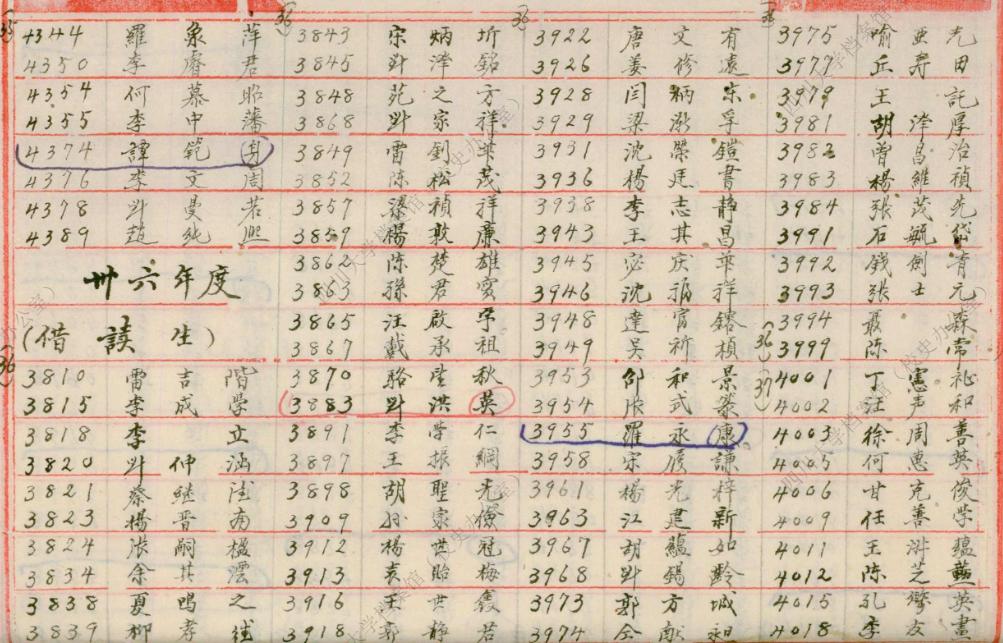 4344 羅象萍
4350 李睿君
4354 何慕昭
4355 李中藩
4374 譚範
4376 李文周
4378 曼若
4389 趙純熙
卅六年度
(借讀生)
3810 雷吉階
3815 李成學
3818 李立
3820 仲涵
3821 蔡継
3823 楊晋
3824 張嗣
3834 余其澐
3838 夏鳴之
3839 柳孝
3843 宋炳圻
3845 澤銘
3848 苑之方
3868 家祥
3849 雷釗
3852 陳松茂
3857 梁禎祥
3859 楊敦廉
3862 陳楚雄
3863 孫君
3865 汪啟宇
3867 戴承祖
3870 駱秋
3883 洪英
3891 李學仁
3897 王振綱
3898 胡聖光
3909 孫家俊
3912 楊世冠
3913 袁貽梅
3916 王世
3918 郭静君
3922 唐文有
3926 姜修遠
3928 闫炳东
3929 梁孚
3931 沈榮鎧
3936 楊廷書
3938 李志静
3943 王其昌
3945 宓庆華
3946 沈福祥
3948 達富鎔
3949 吴祈楨
3953 邵和景
3954 張式
3955 羅永康
3958 宋履謙
3961 楊光梓
3963 江建新
3967 胡蘊如
3968 錫齡
3973 郭方城
3974 仝献
3975 喻亚光
3977 丘寿田
3979 王託
3981 胡澤厚
3982 曾昌治
3983 楊維禎
3984 張茂先
3991 石毓岱
3992 錢劍青
3993 張士元
3994 聂森
3999 陈常
4001 丁憲祉
4002 汪声和
4003 徐周善
4005 何惠英
4006 甘克俊
4009 任善学
4011 王蕴
4012 陈芝
4015 孔繁英
4018 李友